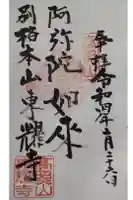 奉拝令和四年二月二十六日
阿弥陀如来
別格本山東耀寺